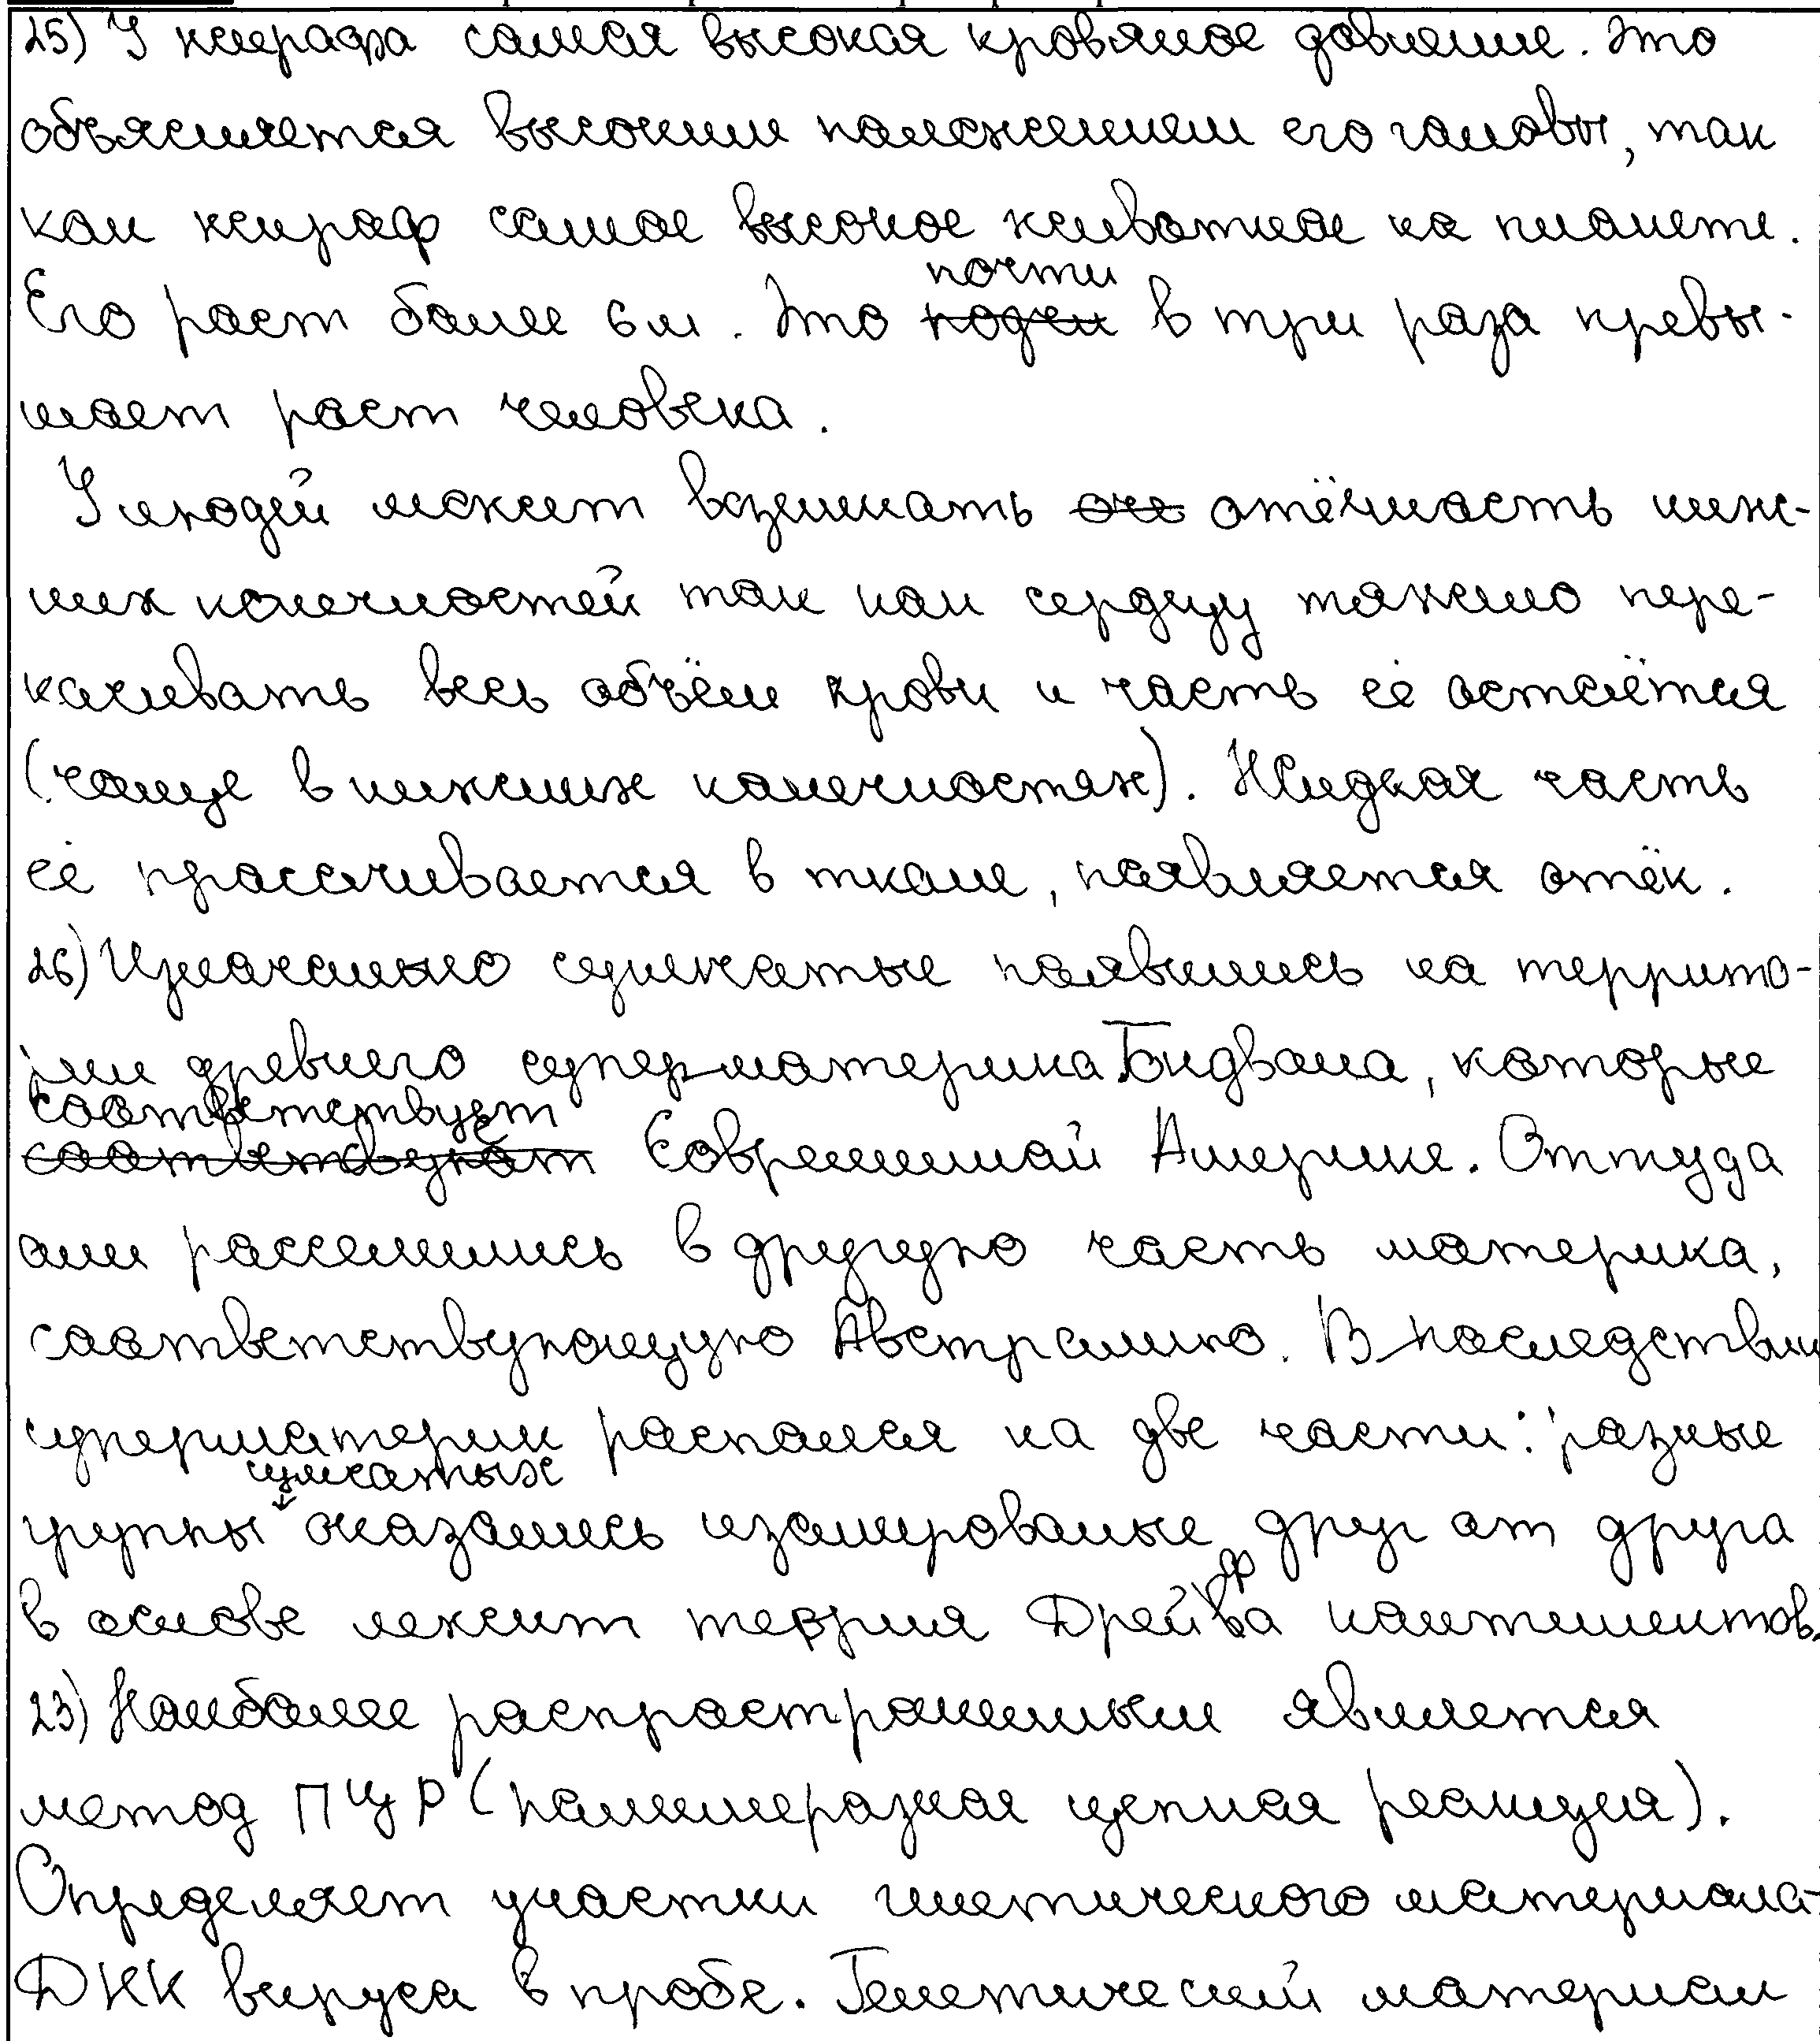 25) У жирафа самая высокая кровяное давление. Это
объясняется высоким положением его головы, так
как жираф самое высокое животное на планете.
Его рост более 6 м. Это почти в три раза превы-
шает рост человека.
У людей может возникать отёчность ниж-
них конечностей так как сердцу тяжело пере-
качивать весь объём крови и часть её остаётся
(чаще в нижних конечностях). Жидкая часть
её просачивается в ткани, появляется отёк.
26) Изначально сумчатые появились на террито-
рии древнего суперматерика Гондвана, которые
соответствует современной Америке. Оттуда
они расселились в другую часть материка,
соответствующую Австралию. В последствии
суперматерик распался на две части: разные
группы сумчатых оказались изолированые друг от друга
в основе лежит теория Дрейфа континентов.
23) Наиболее распространенным является
метод ПЦР (полимеразная цепная реакция).
Определяет участки генетического материала-
ДНК вируса в пробе. Генетический материал